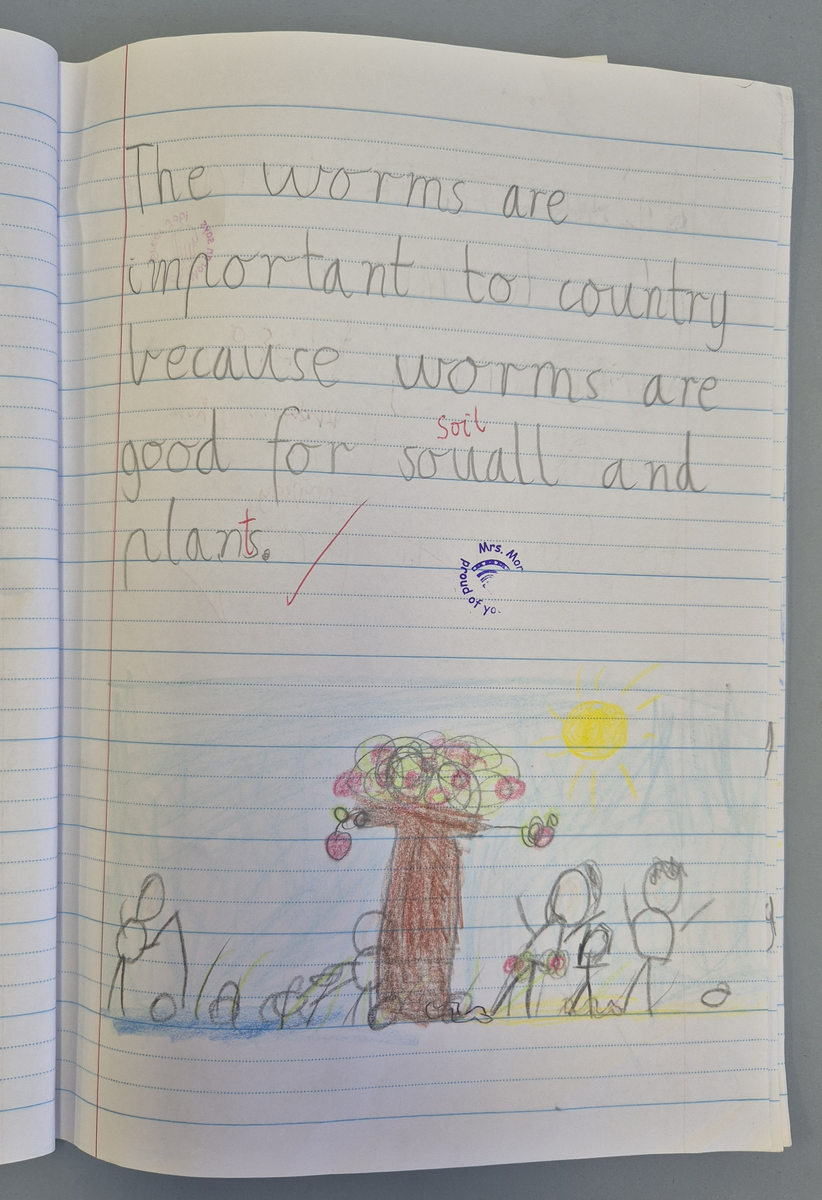 The worms are
important to country
because worms are
soil
good for souall and
plants.
Mrs. Mor
proud of yo